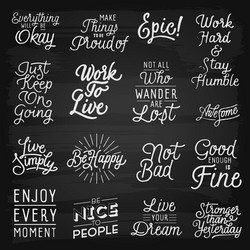 Everything
WILL BE
Okay
MAKE
Things
TO BE
Proud of
Epic!
Work
Hard
&
Stay
Humble
Just
Keep
On
Going
Work
To
Live
NOT ALL
Who
WANDER
ARE
Lost
Awesome
Live
Simply
Be Happy
Not
Bad
Good
ENOUGH
IS
Fine
ENJOY
EVERY
MOMENT
BE
NICE
TO
PEOPLE
Live
YOUR
Dream
Stronger
THAN
Yesterday